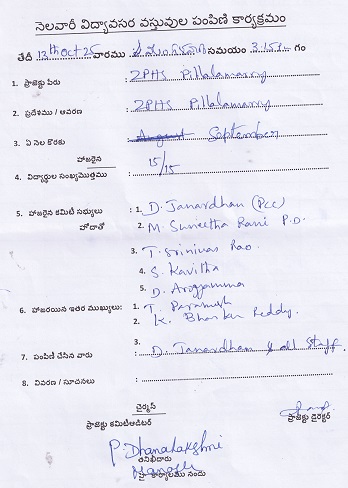 నెలవారీ విద్యావసర వస్తువుల పంపిణి కార్యక్రమం
తేదీ 13th Oct 25 వారము సమయం 3:15 గం
1. ప్రాజెక్టు పేరు : ZPHS Pillalamarry
2. ప్రదేశము / ఆవరణ : ZPHS Pillalamarry
3. ఏ నెల కొరకు : August September
హాజరైన
4. విద్యార్థుల సంఖ్య మొత్తము : 15/15
5. హాజరైన కమిటీ సభ్యులు : 1. D. Janardhan (PCC)
హోదాతో 2. M. Suneetha Rani P.D.
3. T. Srinivas Rao.
4. S. Kavitha
5. D. Arogyamma
6. హాజరయిన ఇతర ముఖ్యులు: 1. T. Paramesh
2. K. Bhaskar Reddy.
3.
7. పంపిణి చేసిన వారు : D. Janardhan & all Staff.
8. వివరణ / సూచనలు :
ఛైర్మన్
ప్రాజెక్టు కమిటీఆడిటర్ ప్రాజెక్టు డైరెక్టర్
P. Dhanalakshmi
తనిఖీదారు
హై కార్యాలయం నందు